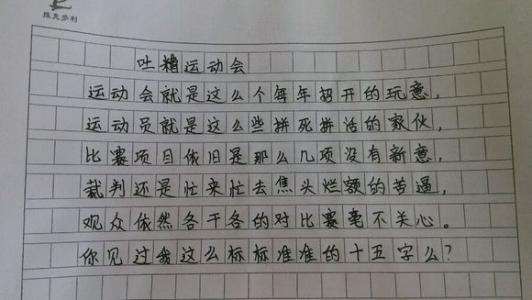 维克多利
吐糟运动会
运动会就是这么个每年招开的玩意,
运动员就是这么些拼死拼活的家伙,
比赛项目依旧是那么几项没有新意,
裁判还是忙来忙去焦头烂额的苦逼,
观众依然各干各的对比赛毫不关心。
你见过我这么标标准准的十五字么?